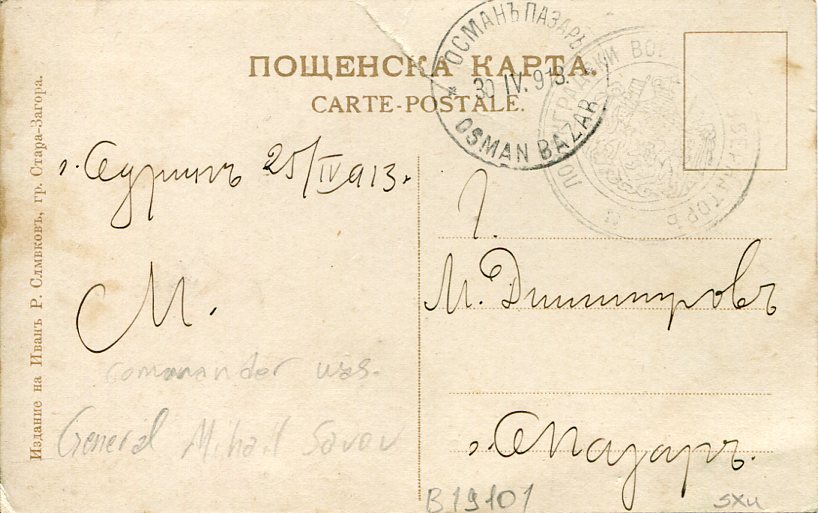 ПОЩЕНСКА КАРТА.
CARTE-POSTALE.
ОСМАНЪ ПАЗАРЪ
30 IV. 913.
OSMAN BAZAR
Издание на Иванъ Р. Слмвковъ, гр. Стара-Загора.
г. Одринъ 25/IV 913.
М.
commander was.
General Mihail Savov
Г.
М. Димитровъ
г. ОПазаръ.
B19101
sxu